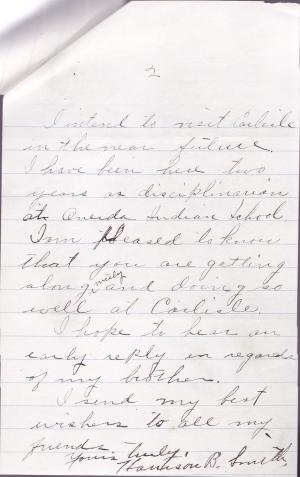 2
I intend to visit Carlisle
in the near future.
I have been here two
years as disciplinarian
at Oneida Indian School.
I am pleased to know
that you are getting
along nicely and doing so
well at Carlisle.
I hope to hear an
early reply in regards
of my brother.
I send my best
wishes to all my
friends.
Yours truly,
Harrison B. Smith,